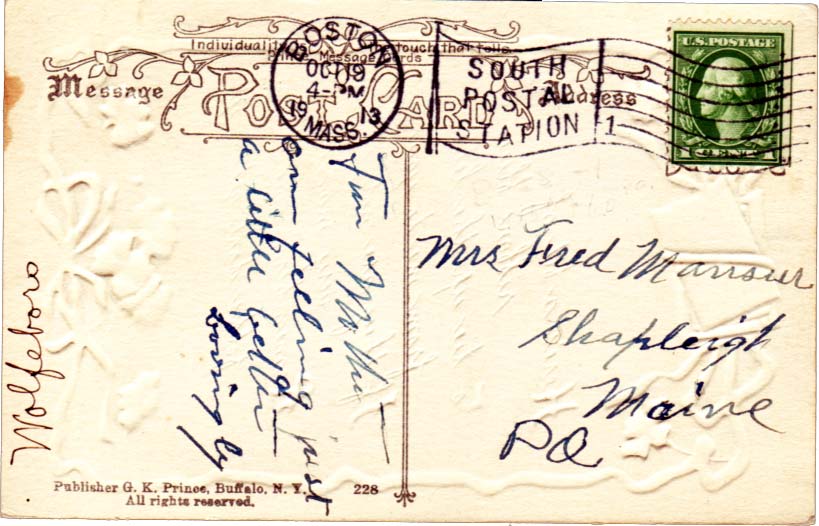 Individuality the touch that tells
Prince Message Cards
Message
POST CARD
Address
BOSTON
OCT 19
4-PM
19 13
MASS.
SOUTH
POSTAL
STATION 1
U.S. POSTAGE
1 CENT 1
From Mother —
am feeling just
a little better —
Lovingly
Mrs Fred Mansur
Shapleigh
Maine
PO
Wolfeboro
Publisher G. K. Prince, Buffalo, N. Y.
All rights reserved.
228